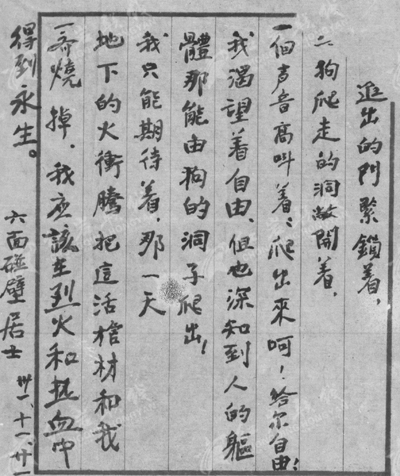 出的門緊鎖着,
狗爬走的洞敞開着,
一個声音高叫着:爬出來呵!给尔自由!
我渴望着自由,但也深知到人的軀
體那能由狗的洞子爬出!
我只能期待着,那一天
地下的火衝騰把這活棺材和我
一齊燒掉,我应該在烈火和热血中
得到永生。
六面碰壁居士 卅一、十一、廿一